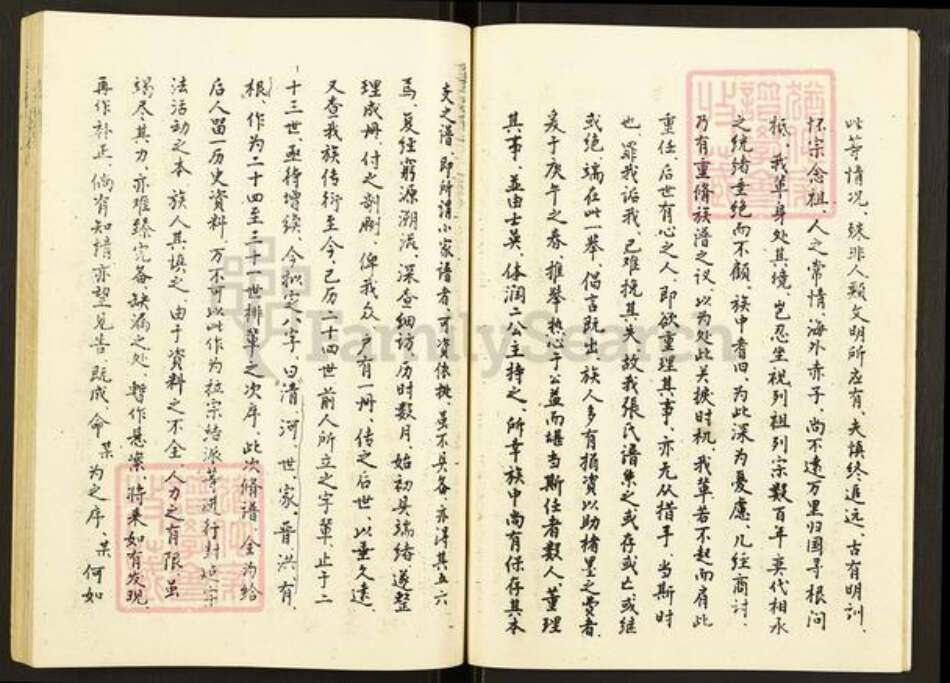 此等情况、殊非人类文明所应有、夫慎终追远、古有明训、
怀宗念祖、人之常情、海外赤子、尚不远万里归国寻根问
祗、我辈身处其境、岂忍坐视列祖列宗数百年来代相承
之统绪垂绝而不顾、族中耆旧、为此深为忧虑、几经商讨、
乃有重脩族谱之议、以为处此关捩时机、我辈若不起而肩此
重任、后世有心之人、即欲重理其事、亦无从措手、当斯时
也、罪我诟我、已难挽其失、故我张氏谱集之或存或亡、或继
或绝、端在此一举、倡言既出、族人多有捐资以助楮墨之费者、
爰于庚午之春、推举热心于公益而堪当斯任者数人、董理
其事、並由士吴、体润二公主持之、所幸族中尚有保存其本
支之谱、即所谓小家谱者、可资依据、虽不具备、亦得其五六
焉、复经穷源溯流、深查细访、历时数月、始初具端绪、遂整
理成册、付之剞劂、俾我众户有一册、传之后世、以垂久远、
又查我族传衍至今、已历二十四世、前人所立之字辈、止于二
十三世、亟待增续、今拟定八字、曰清、河、世、家、晋、洪、有、
根、作为二十四至三十一世排辈之次序、此次脩谱、全为给
后人留一历史资料、万不可以此作为拉宗结派等、进行封建宗
法活动之本、族人其慎之、由于资料之不全、人力之有限、虽
竭尽其力、亦难臻完备、缺漏之处、暂作悬案、将来如有发现、
再作补正、倘有知情、亦望见告、既成、命某为之序、某何如
FamilySearch